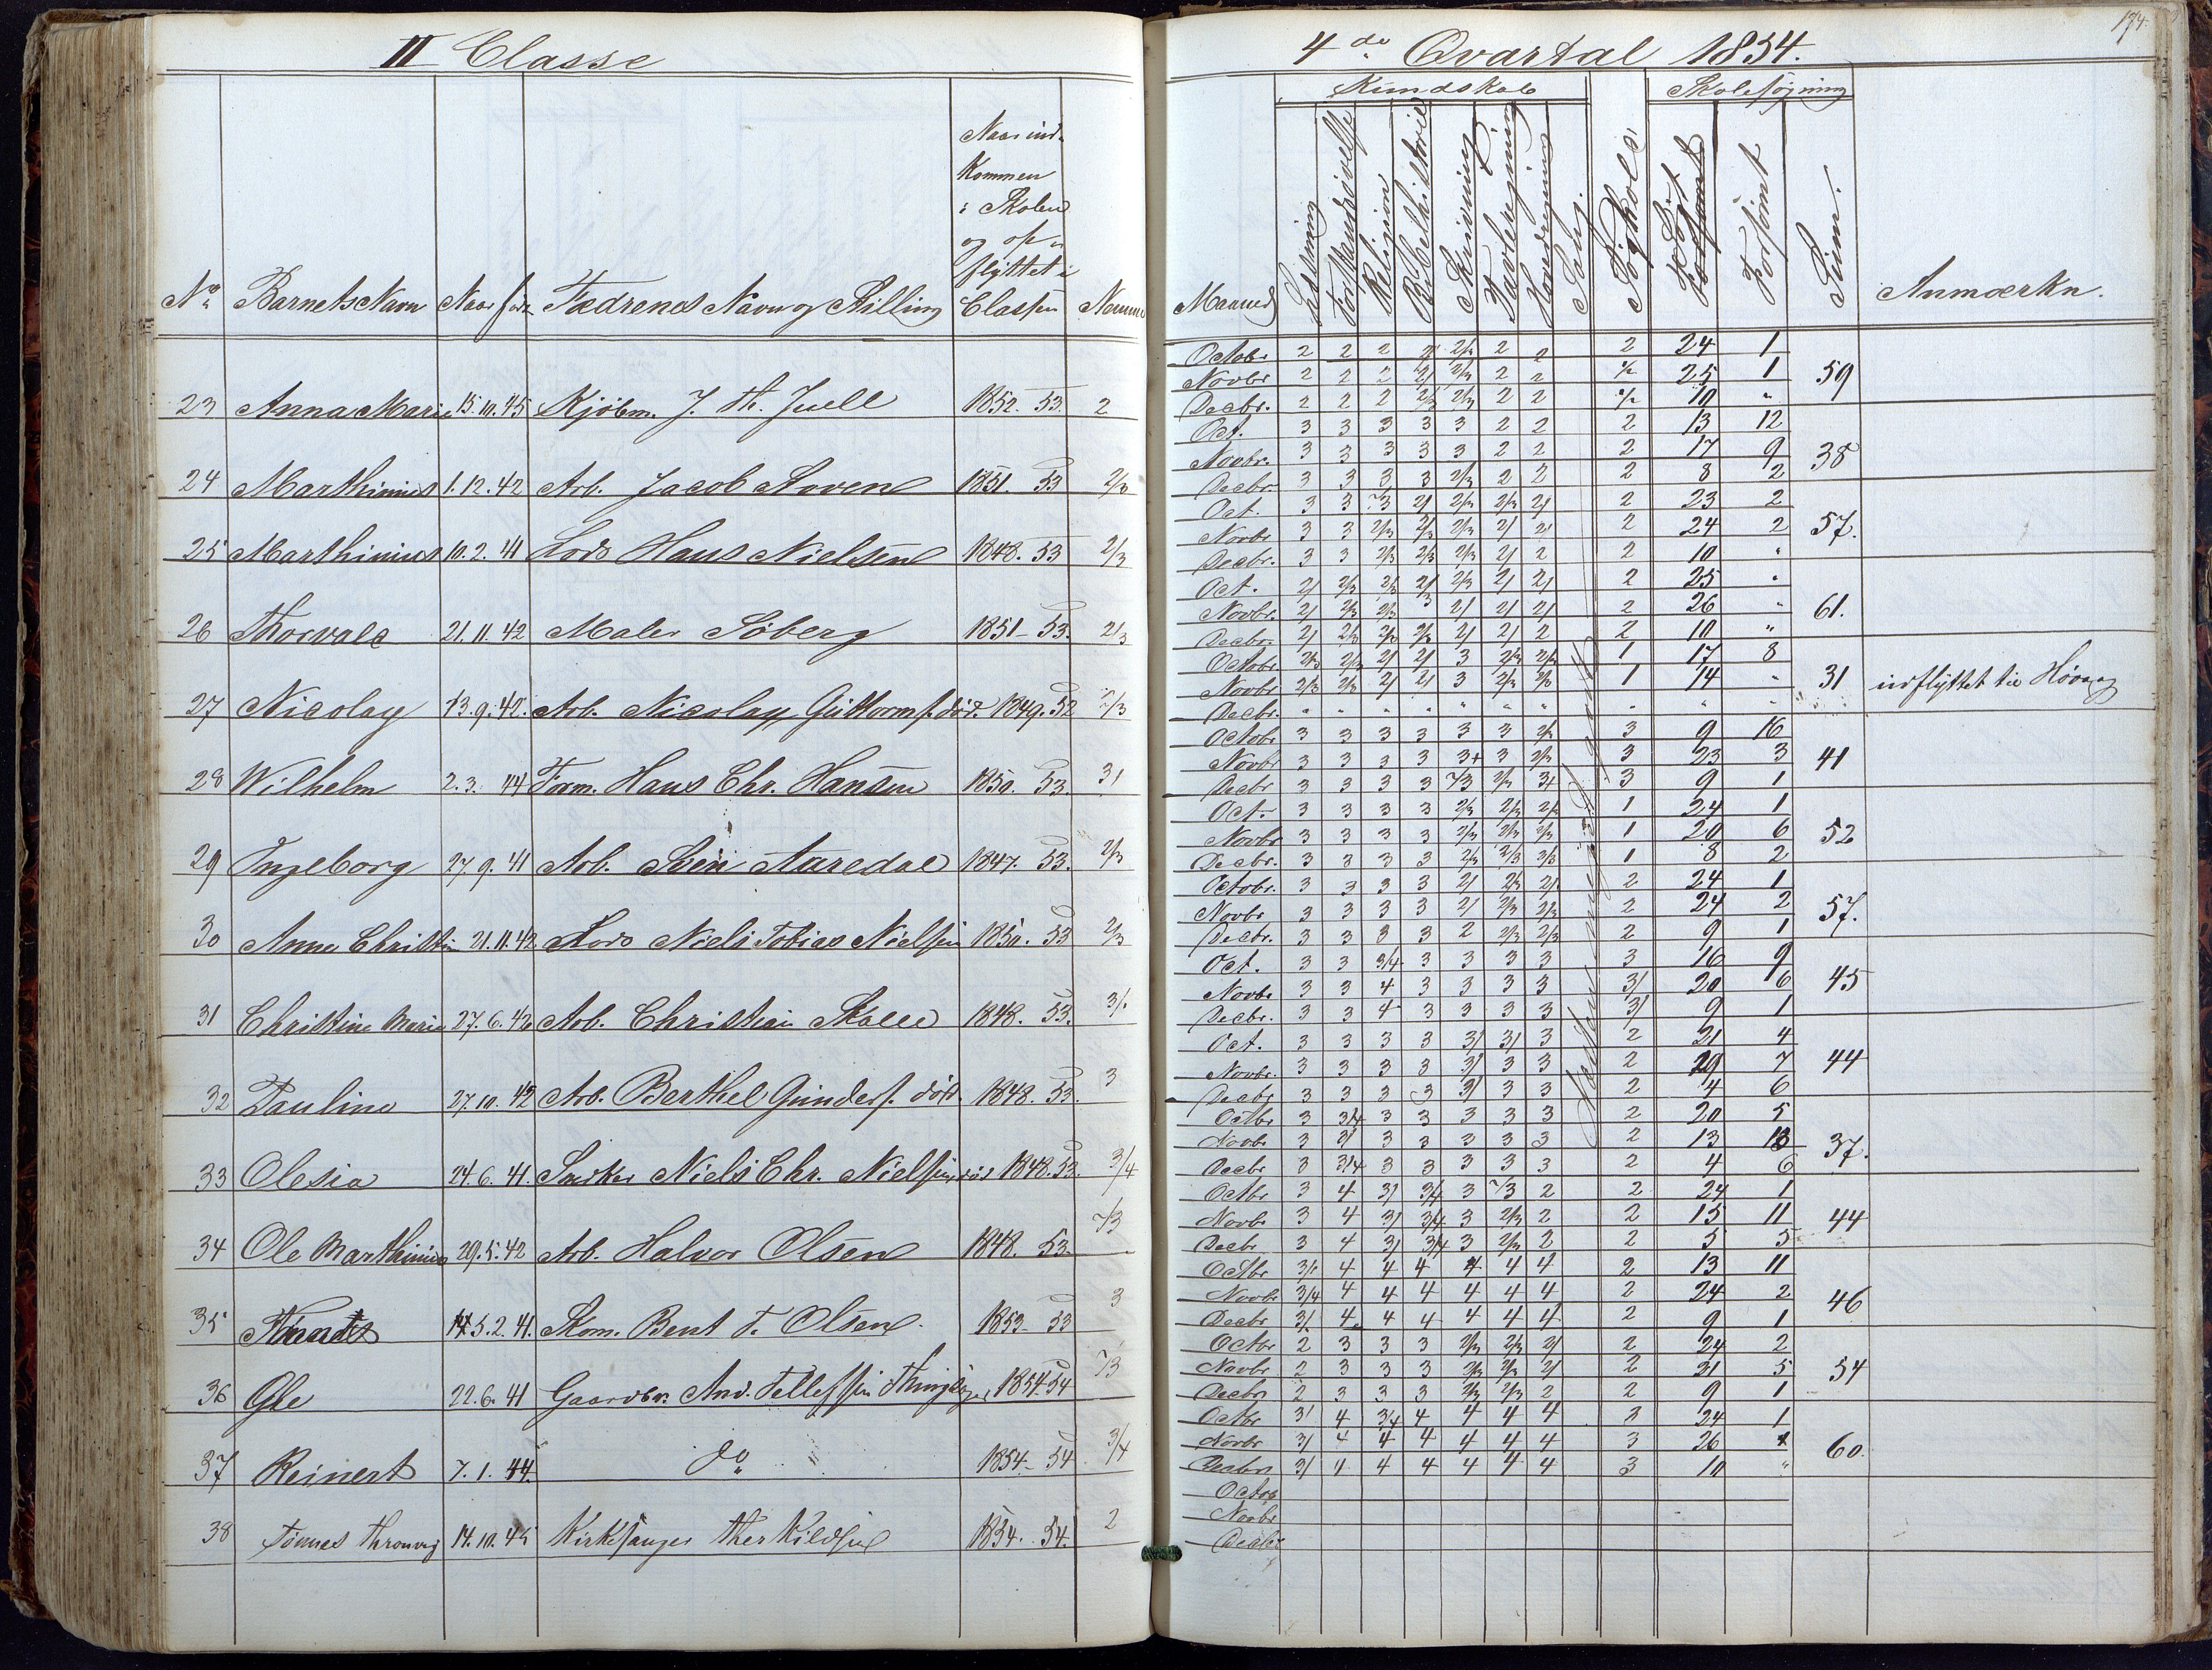 II Classe
No Barnets Navn Naar født Fædrenes Navn og Stilling Naar ind- kommen i Skolen og op- flyttet i Classen
23 Anna Marie 15.10.45 Kjøbm. J. Th. Juell 1852. 53. 2
24 Marthinius 1.12.42 Arb. Jacob 1851. 53 2/3
25 Marthinius 10.2.41 Lods Hans Nielsen 1848. 53 2/3
26 Thorvald 21.11.42 Maler Söberg 1851 - 53. 2/3
27 Nicolay 13.9.42. Arb. Nicolay Guttorms. død. 1849. 52 2/3
28 Wilhelm 2.3.44 Tørm. Hans Chr. Hansen 1850. 53. 3/
29 Ingeborg 27.9.41 Arb. Sven Aaredal 1847. 53. 2/3
30 Anne Christine 21.11.42 Lods Niels Tobias Nielsen 1850. 53 2/3
31 Christine Marie 27.6.42 Arb. Christian 1848. 53. 3/
32 Pauline 27.10.42 Arb. Berthel Gunders. død. 1848. 53. 3
33 Olesia 24.6.41. Snedker Niels Chr. Nielsen død 1848. 53. 3/4
34 Ole Marthinius 29.5.42 Arb. Halvor Olsen 1848. 53 2/3
35 5.2.41. Skom. Bent T. Olsen 1853 - 53 3
36 Ole 22.6.41 Gaardbr. And. Tellefsen 1854. 54 2/3
37 Reinert 7.1.44 do " 1854 - 54 3/4
38 Tønnes 14.10.45 Kirkesanger Therkildsen 1854. 54. 2
174
4de Qvartal 1854.
Kundskab Skolesøgning
Maaned Læsning Forstandsøvelse Religion Bibelhistorie Skrivning Tavleregning Hovedregning Sang. Forhold Søgt Forsømt Sum. Anmærkn.
Octobr. 2 2 2 2/ 2/3 2 2 2 24 1
Novbr 2 2 2 2/ 2/3 2 2 ½ 25 1 59
Decbr. 2 2 2 2/3 2/3 2 2 ½ 10 "
Oct. 3 3 3 3 3 2 2 2 13 12
Novbr. 3 3 3 3 3 2 2 2 17 9 38
Decbr. 3 3 3 3 2/3 2 2 2 8 2
Oct. 3 3 2/3 2/ 2/3 2/3 2/ 2 23 2
Novbr 3 3 2/3 2/3 2/3 2/ 2/ 2 24 2 57.
Decbr. 3 3 2/3 2/3 2/3 2/ 2 2 10 "
Oct. 2/ 2/3 2/3 2/ 2/3 2/ 2/ 2 25 "
Novbr. 2/ 2/3 2/3 3 2/ 2/ 2/ 2 26 " 61.
Decbr. 2/ 2/3 2/3 2/3 2/ 2/ 2 2 10 "
Octobr. 2/3 2/3 2/ 2/ 3 2/3 2/3 1 17 8
Novbr 2/3 2/3 2/ 2/ 3 2/3 2/3 1 14 - 31 udflyttet til Høvaag
Decbr. " " " " " " " " " "
Octobr 3 3 3 3 3 3 2/3 3 9 16
Novbr 3 3 3 3 3+ 3 2/3 3 23 3 41
Decbr 3 3 3 3 2/3 2/3 3+ 3 9 1
Oct. 3 3 3 3 2/3 2/3 2/3 1 24 1
Novbr 3 3 3 3 2/3 2/3 2/3 1 20 6 52
Decbr. 3 3 3 3 2/3 2/3 2/3 1 8 2
Octobr. 3 3 3 3 2/ 2/3 2/ 2 24 1
Novbr 3 3 3 3 2/ 2/3 2/3 2 24 2 57.
Decbr. 3 3 3 3 2 2/3 2/3 2 9 1
Oct. 3 3 3/4 3 3 3 3 3 16 9
Novbr 3 3 4 3 3 3 3 3/ 20 6 45
Decbr. 3 3 4 3 3 3 3 3/ 9 1
Oct. 3 3 3 3 3/ 3/ 3 2 21 4
Novbr. 3 3 3 3 3/ 3 3 2 19 7 44
Decbr 3 3 3 3 3/ 3 3 2 4 6
Octbr 3 3/4 3 3 3 3 3 2 20 5
Novbr 3 3/ 3 3 3 3 3 2 13 13 37.
Decbr 3 3/4 3 3 3 3 3 2 4 6
Octbr 3 4 3/ 3/4 3 2/3 2 2 24 1
Novbr 3 4 3/ 3/4 3 2/3 2 2 15 11 44
Decbr 3 4 3/ 3/4 3 2/3 2 2 5 5
Octbr 3/ 4 4 4 4 4 4 2 13 11
Novbr. 3/4 4 4 4 4 4 4 2 24 2 46
Decbr 3/ 4 4 4 4 4 4 2 9 1
Octbr 2 3 3 3 2/3 2/3 2/ 2 24 2
Novbr 2 3 3 3 2/3 2/3 2/ 2 21 5 54
Decbr 2 3 3 3 2/3 2/3 2 2 9 1
Octbr 3/ 4 3/4 4 4 4 4 3 24 1
Novbr 3/ 4 4 4 4 4 4 3 26 60.
Decbr 3/ 4 4 4 4 4 4 3 10 "
Octob
Novbr
Decbr